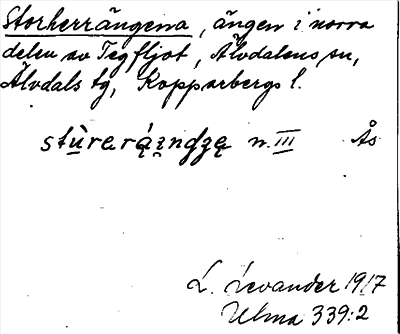 Storherrängena, ängen i norra
delen av Tegfljot, Älvdalens sn,
Älvdals tg, Kopparbergs l.
stù̠rerą́i̠nʤę n. III Ås
L. Levander 1917
Ulma 339:2